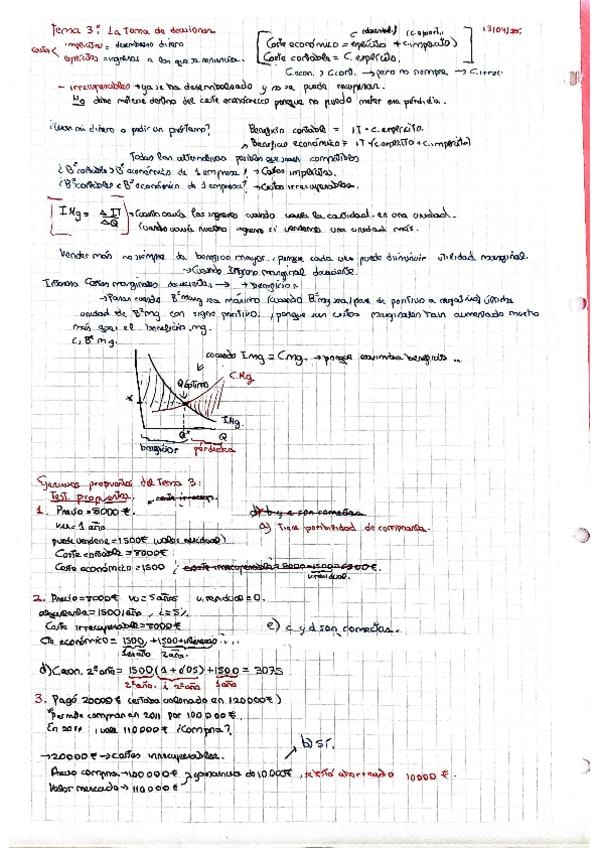 Tema 3: La Toma de decisiones
13/04/
Costes < implícitos = desembolso dinero
explícitos = ingresos a los que se renuncia.
Coste económico = explícito + c. implícito)
Coste contable = C. explícito.
C. econ. > C. cont. → pero no siempre →
- irrecuperables → ya se ha desembolsado y no se puede recuperar.
No debe meterse dentro del coste económico porque no puedo meter esa pérdida.
mi dinero o pedir un préstamo?
Beneficio contable = IT - C. explícito.
Beneficio económico = IT - (c. explícito + c. implícito)
Todas las alternativas posibles que sean
¿Bº contable > Bº económico de 1 empresa? → Costes implícitos.
¿Bº contable < Bº económico de 1 empresa? → Costes irrecuperables.
IMg = ΔIT/ΔQ → Cuánto varía los ingresos cuando varía la cantidad en una unidad.
Cuando varía nuestro ingreso si vendemos una unidad más.
Vender más no siempre da beneficio mayor, porque cada vez puede disminuir utilidad marginal.
→ Cuando Ingreso marginal decreciente.
Costes marginales → + beneficios
→ Parar cuando Bº marg sea máximo (cuando Bº mg sea/pase de positivo a negativo) última
unidad de Bº mg. con signo positivo, porque sus costes marginales han aumentado mucho
más que el beneficio mg.
C, Bº mg.
cuando Img = Cmg. → porque beneficio ..
C.Mg.
Qóptimo
x
I.Mg.
Q* Q
beneficios pérdidas
Ejercicios propuestos del Tema 3:
Test propuestos.
1. Precio = 8000 €.
vu = 1 año
a) Tiene posibilidad de comprarla.
puede venderse = 1500€ (valor residual)
Coste contable = 8000€
Coste económico = 1500
v. residual.
2. Precio = 7000€ vu = 5 años v. residual = 0.
= 1500/año, i = 5%.
Coste irrecuperable = 7000€
e) c y d son correctas.
Cte económico = 1500 + 1500 + ...
1er año 2 año.
d) C. econ. 2º año = 1500 (1 + 0'05) + 1500 = 3075
2º año. i 2º año 1 año
3. Pagó 20000€ (estaba valorado en 120000€)
Permite comprar en 2011 por 100000€.
En 2011, vale 110000€ ¿Compra?
b) sí.
→ 20000€ → costes irrecuperables.
Precio compra → 100000€ > ganancia de 10000€, se está ahorrando 10000€.
Valor mercado → 110000€